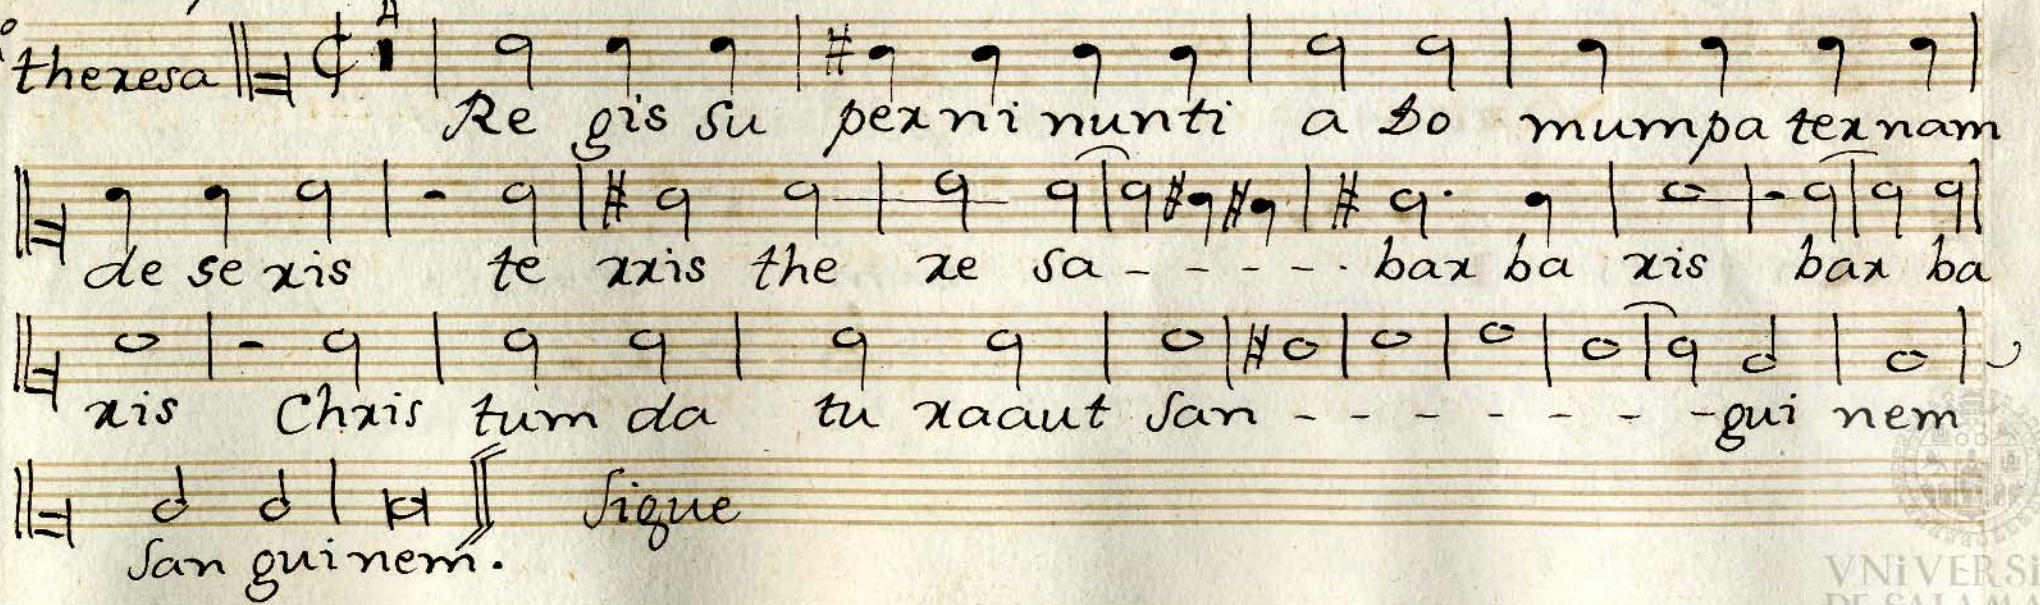 theresa
Re gis su per ni nunti a Do mumpa ternam
de se ris te rris the re sa - - - - - . bar ba ris bar ba
ris Chris tum da tu raaut san - - - - - - -gui nem
Sigue
san guinem.
VNiVERSi